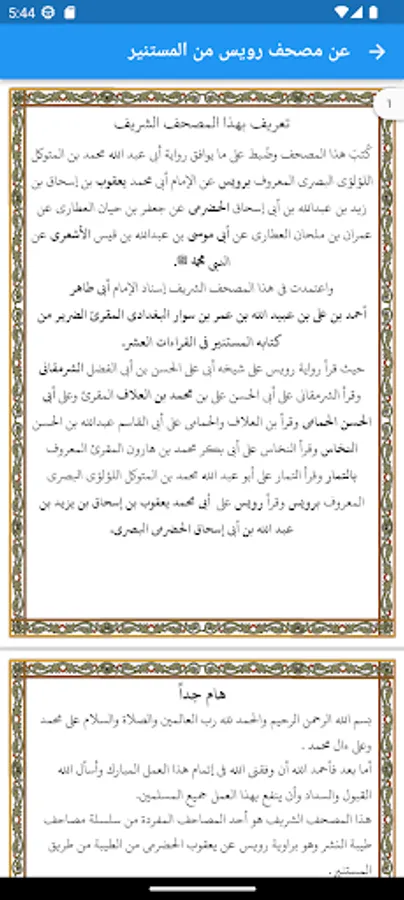 5:44
عن مصحف رويس من المستنير
١
تعريف بهذا المصحف الشريف
كُتبَ هذا المصحف وضُبط على ما يوافق رواية أبي عبد الله محمد بن المتوكل
اللؤلؤى البصرى المعروف برويس عن الإمام أبي محمد يعقوب بن إسحاق بن
زيد بن عبدالله بن أبي إسحاق الحضرمى عن جعفر بن حيان العطارى عن
عمران بن ملحان العطارى عن أبى موسى بن عبدالله بن قيس الأشعرى عن
النبي محمد ﷺ.
واعتمدت في هذا المصحف الشريف إسناد الإمام أبي طاهر
أحمد بن على بن عبيد الله بن عمر بن سوار البغدادى المقرئ الضرير من
كتابه المستنير فى القراءات العشر.
حيث قرأ رواية رويس على شيخه أبى على الحسن بن أبى الفضل الشرمقانى
وقرأ الشرمقانى على أبى الحسن على بن محمد بن العلاف المقرئ وعلى أبى
الحسن الحمامى وقرأ بن العلاف والحمامى على أبى القاسم عبدالله بن الحسن
النخاس وقرأ النخاس على أبى بكر محمد بن هارون المقرئ المعروف
بالتمار وقرأ التمار على أبو عبد الله محمد بن المتوكل اللؤلؤى البصرى
المعروف برويس وقرأ رويس على أبى محمد يعقوب بن إسحاق بن يزيد بن
عبد الله بن أبى إسحاق الحضرمى البصرى.
هام جداً
بسم الله الرحمن الرحيم والحمد لله رب العالمين والصلاة والسلام على محمد
وعلى ءال محمد .
أما بعد فأحمد الله أن وفقنى الله فى إتمام هذا العمل المبارك وأسأل الله
القبول والسداد وأن ينفع بهذا العمل جميع المسلمين.
هذا المصحف الشريف هو أحد المصاحف المفردة من سلسلة مصاحف
طيبة النشر وهو براوية رويس عن يعقوب الحضرمى من الطيبة من طريق
المستنير.